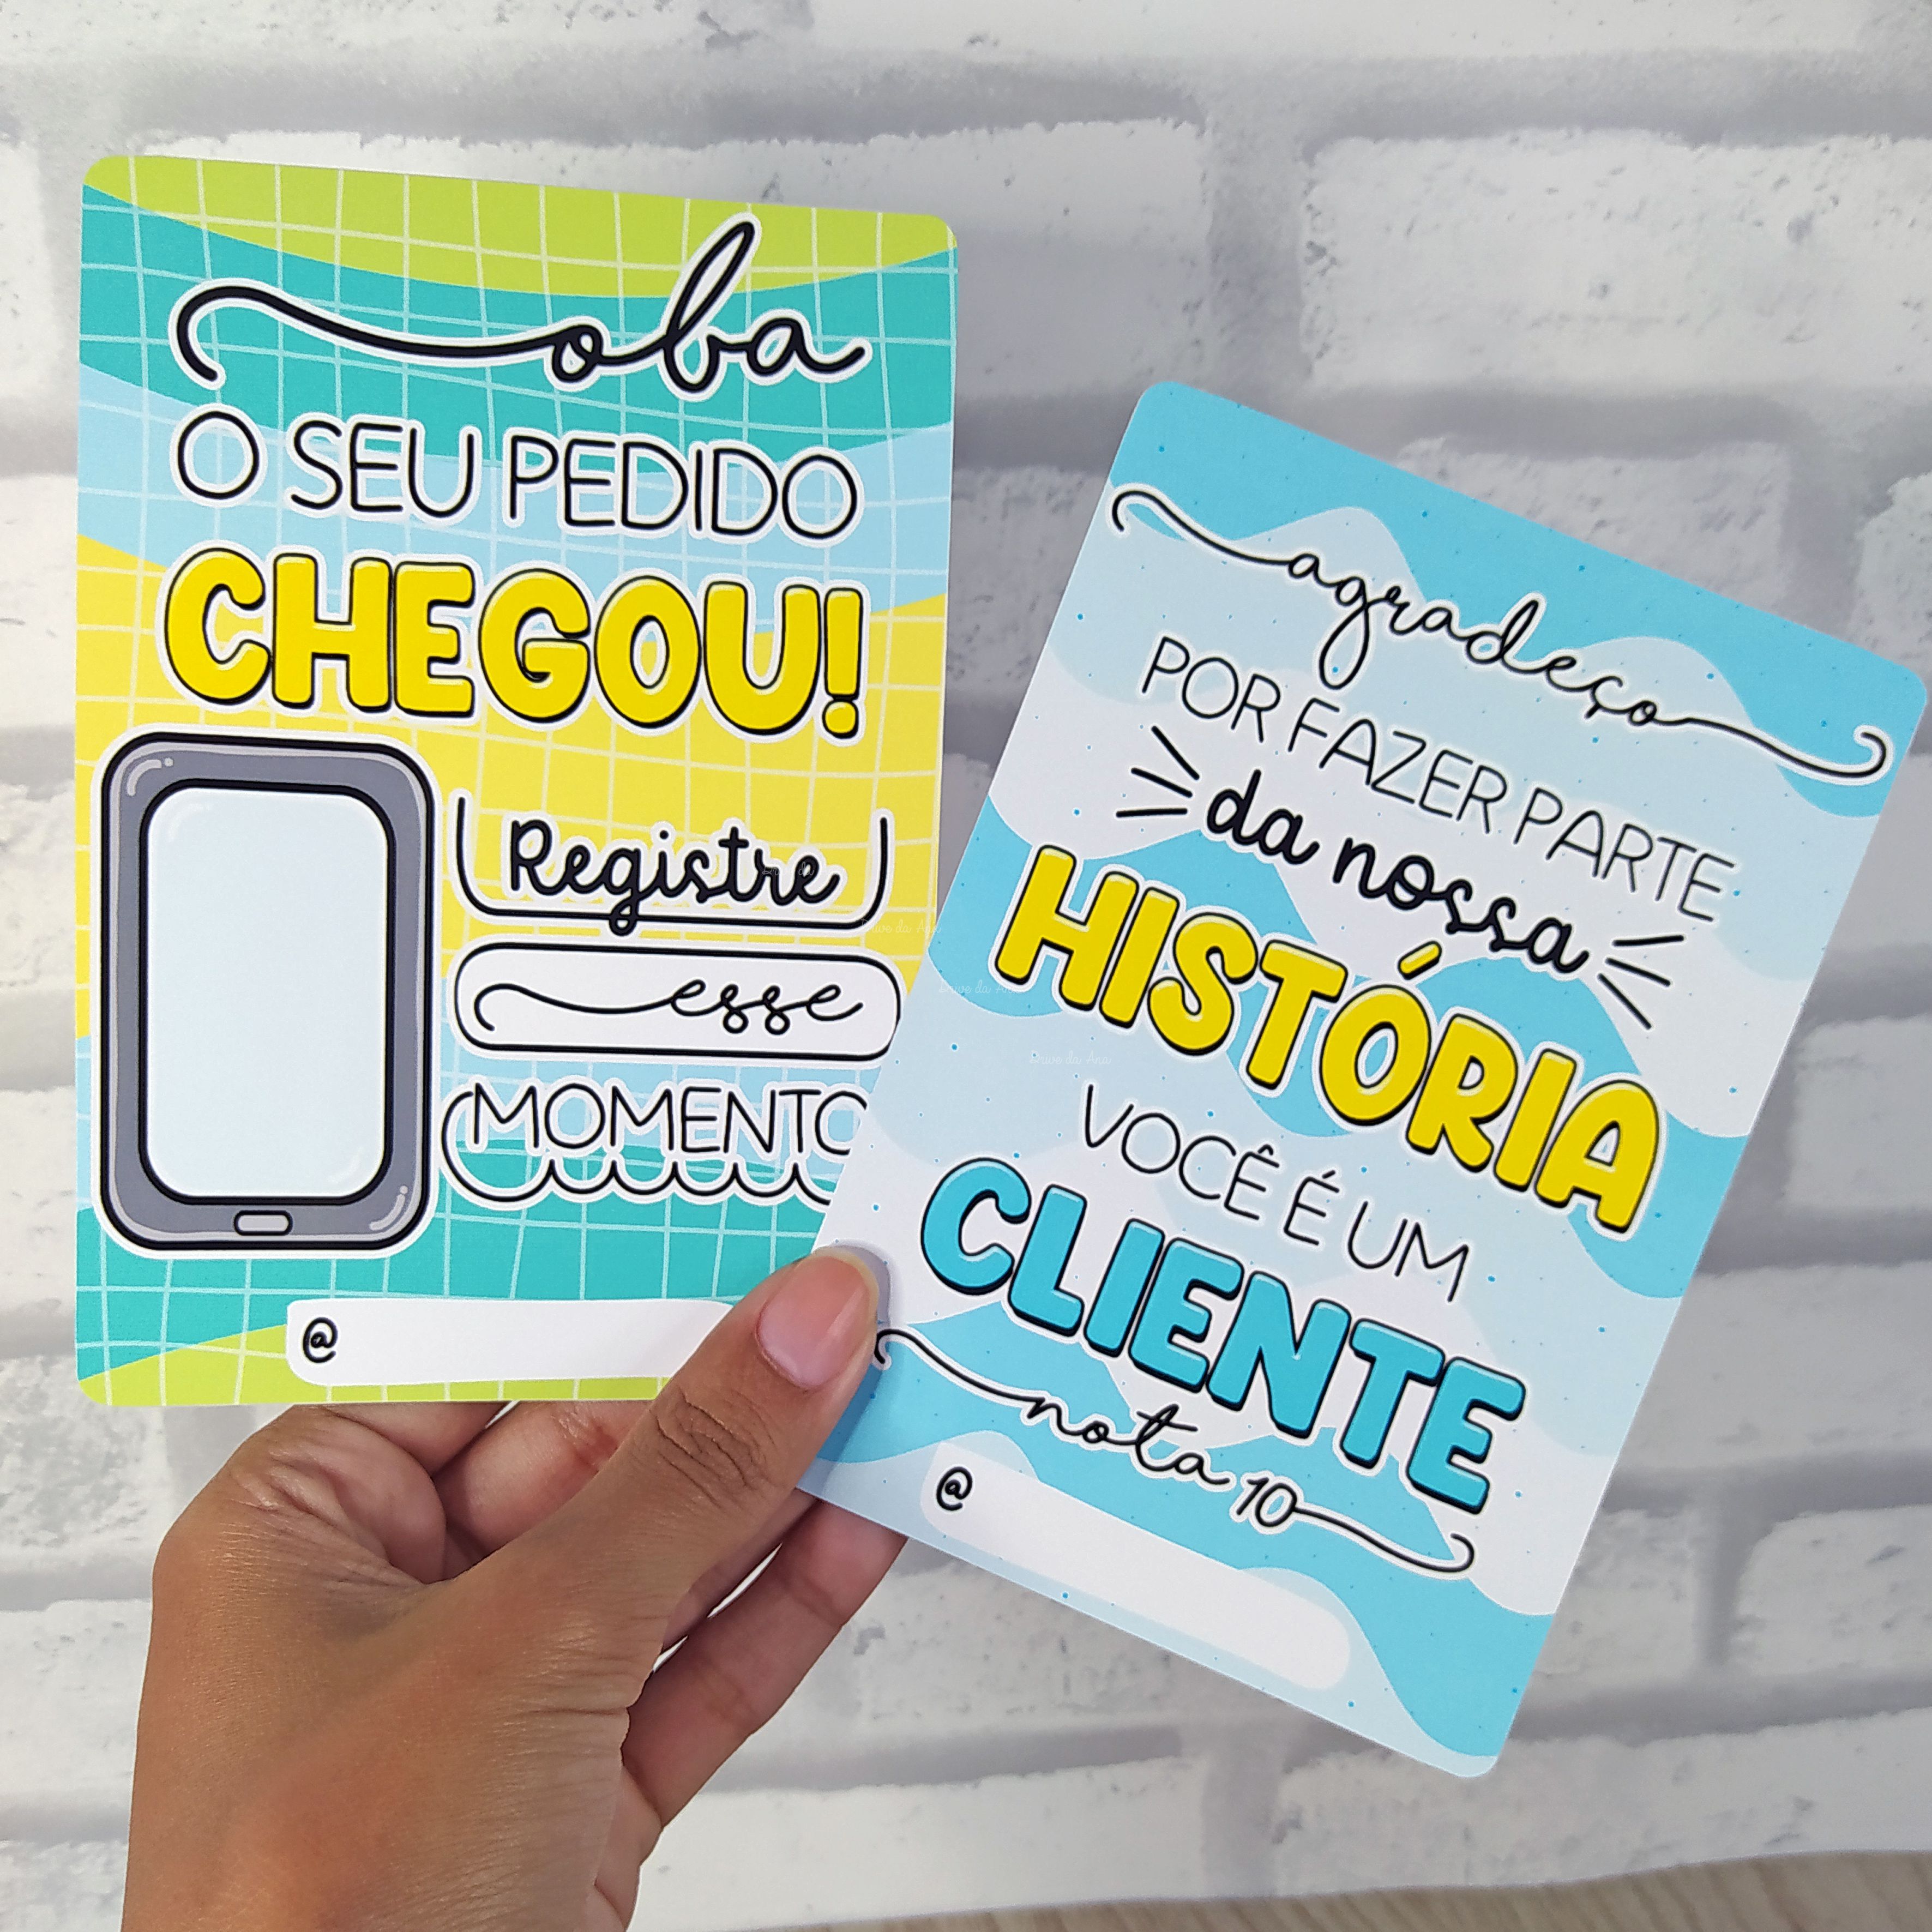 oba
O SEU PEDIDO
CHEGOU!
Registre
esse
MOMENTO
@
agradeço
POR FAZER PARTE
da nossa
HISTÓRIA
VOCÊ É UM
CLIENTE
nota 10
@